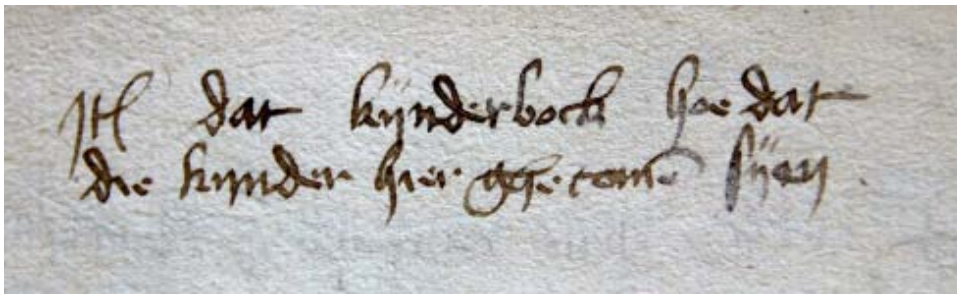 Itē dat kÿnderbock hoe dat
die kynder hier ghecomē sÿen